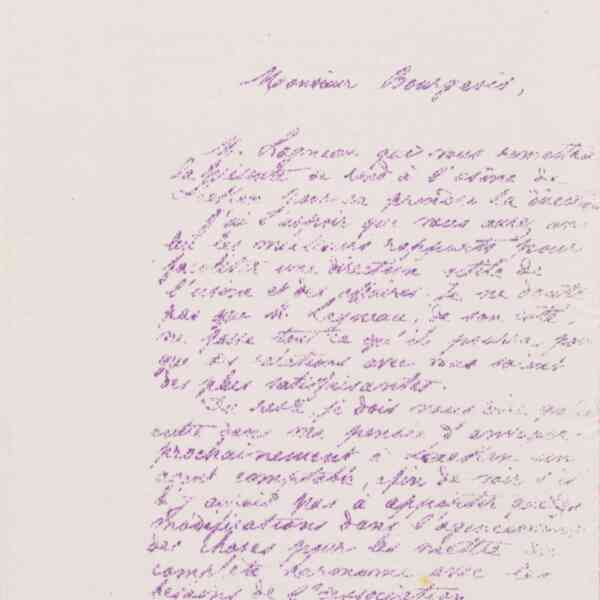 Monsieur Bourgeois,
M. Lagneau qui vous remettra
la présente se rend à l'usine de
pour en prendre la direction
J'ai l'espoir que vous aurez
les meilleurs rapports pour
faciliter une direction utile de
l'usine et des affaires. Je ne doute
pas que M. Lagneau, de son côté,
ne fasse tout ce qu'il pourra, pour
que les relations avec vous soient
des plus satisfaisantes.
Du reste je dois vous dire qu'il
entre dans ma pensée d'envoyer
prochainement à un
agent comptable, afin de voir s'il
n'y aurait pas à apporter quelques
modifications dans l'agencement
des choses pour les mettre en
complète harmonie avec les
besoins de l'association